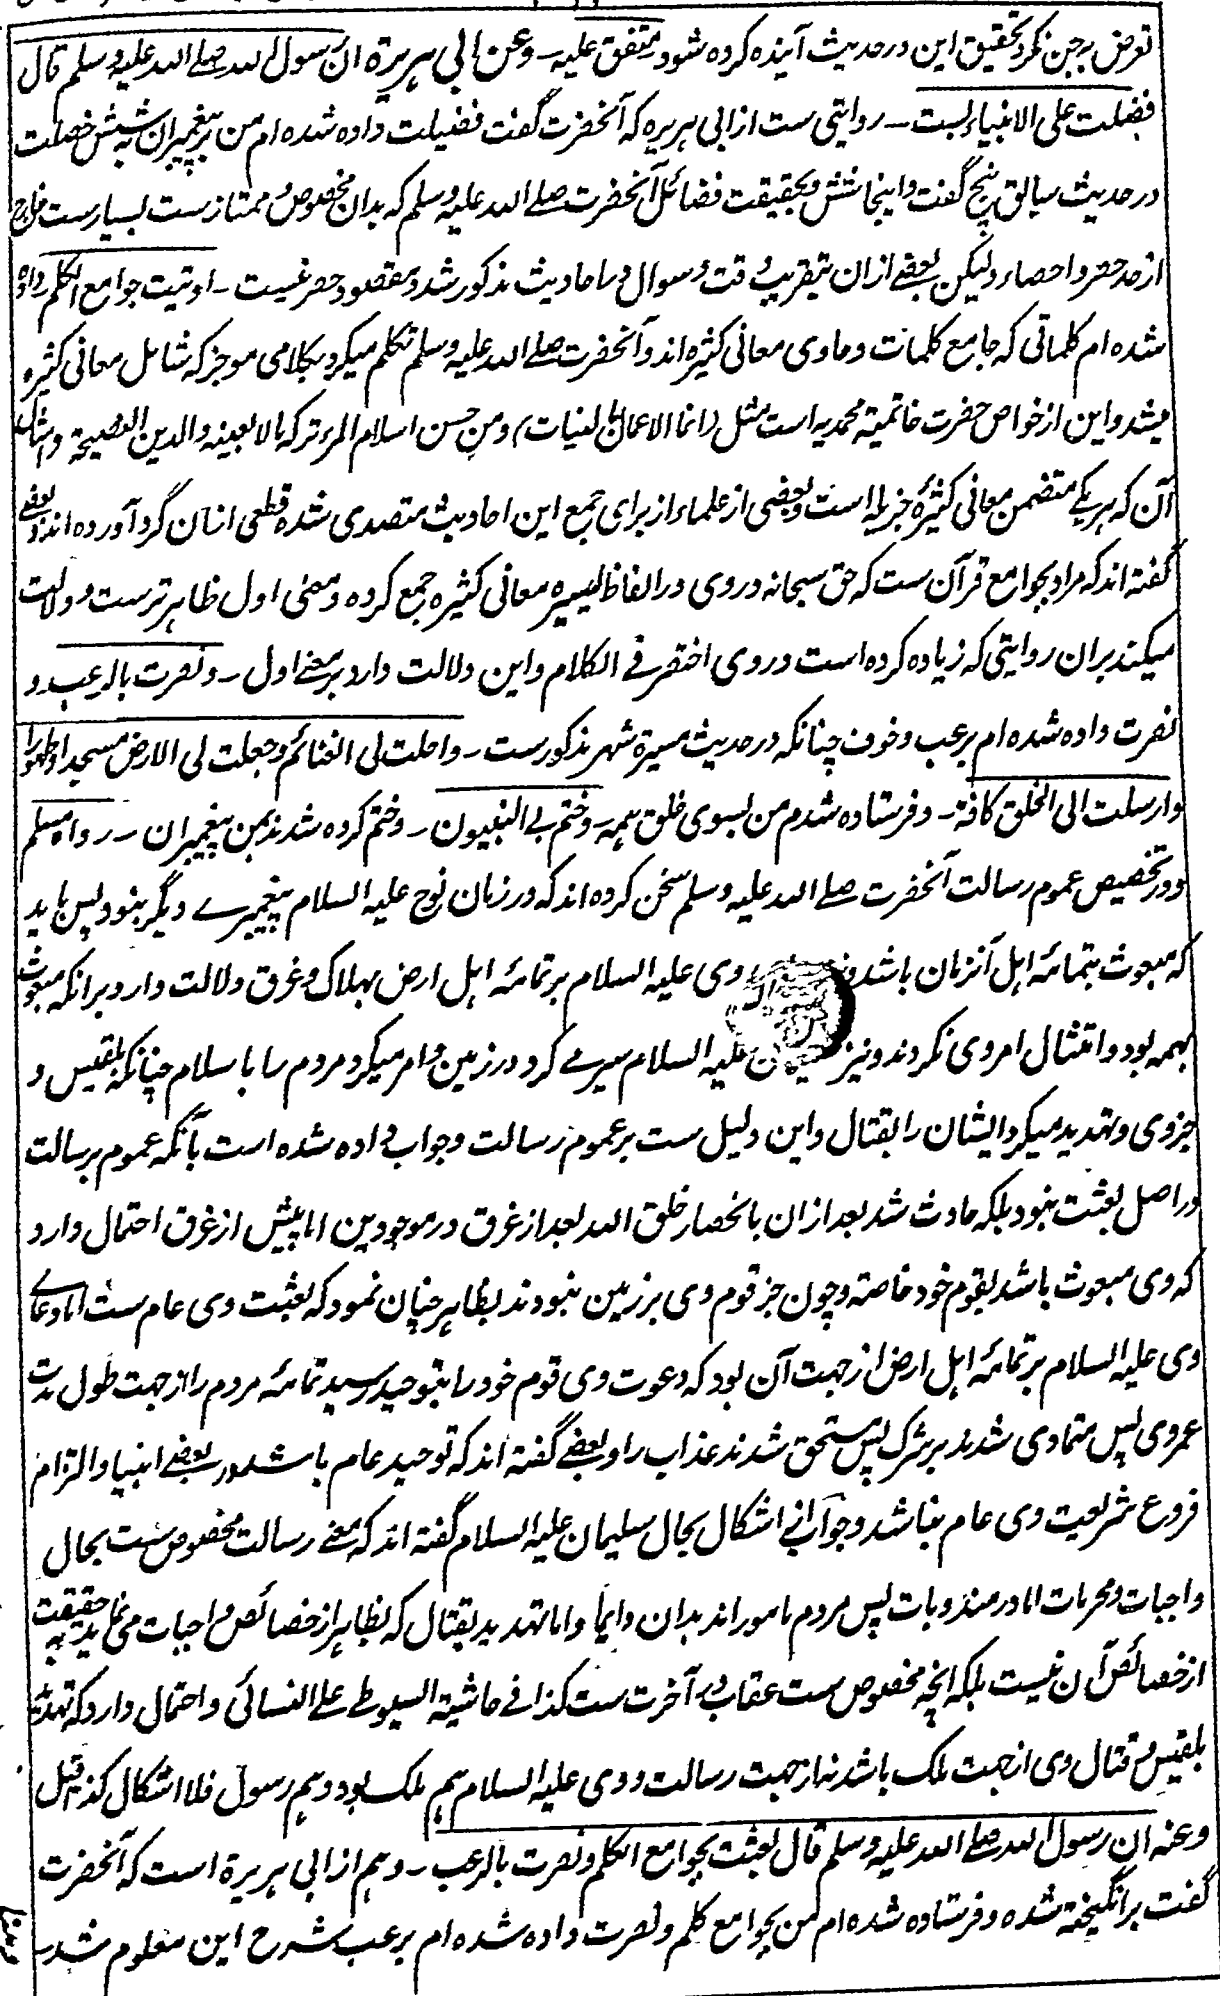 تعرض بر جن نکرد تحقیق این در حدیث آینده کرده شود متفق علیه - وعن ابی هریرة ان رسول الله صلے الله علیه وسلم قال
فضلت علی الانبیاء بست - روایتی ست از ابی هریره که آنحضرت گفت فضیلت داده شده ام من بر پیغمبران بشش خصلت
در حدیث سابق پنج گفت و اینجا شش و بحقیقت فضائل آنحضرت صلے الله علیه وسلم که بدان مخصوص و ممتاز ست بسیار ست خارج
از حد حصر و احصاء ولیکن بعضے ازان بتقریب وقت و سوال در احادیث مذکور شد و مقصود حصر نیست - اوتیت جوامع الکلم داده
شده ام کلماتی که جامع کلمات و حاوی معانی کثیره اند و آنحضرت صلے الله علیه وسلم تکلم میکرد بکلامی موجز که شامل معانی کثیره
میشد و این از خواص حضرت خاتمیه محمدیه است مثل (انما الاعمال بالنیات) ومن حسن اسلام المرء ترکه مالا یعنیه والدین النصیحة و امثال
آن که هر یکے متضمن معانی کثیرهٔ جزیله است و بعضی از علماء از برای جمع این احادیث متصدی شده قطعی ازان گرد آورده اند و بعضے
گفته اند که مراد بجوامع قرآن ست که حق سبحانه در وی در الفاظ یسیره معانی کثیره جمع کرده و معنی اول ظاهر ترست و دلالت
میکند بران روایتی که زیاده کرده است در وی اختصر لی الکلام و این دلالت دارد بر معنے اول - ونصرت بالرعب و
نصرت داده شده ام برعب و خوف چنانکه در حدیث مسیرة شهر مذکورست - واحلت لی الغنائم وجعلت لی الارض مسجدا وطهورا
وارسلت الی الخلق کافة - و فرستاده شدم من بسوی خلق همه - وختم بی النبیون - و ختم کرده شدند بمن پیغمبران - رواه مسلم
و در تخصیص عموم رسالت آنحضرت صلے الله علیه وسلم سخن کرده اند که در زمان نوح علیه السلام پیغمبرے دیگر نبود پس باید
که مبعوث بتمامهٔ اهل آنزمان باشد وی علیه السلام بر تمامهٔ اهل ارض بهلاک و غرق دلالت دارد برانکه مبعوث
بهمه بود و امتثال امر وی نکردند و نیز علیه السلام سیرے کرد در زمین و امر میکرد مردم را باسلام چنانکه بلقیس و
جز وی و تهدید میکرد ایشان را بقتال و این دلیل ست بر عموم رسالت و جواب داده شده است بآنکه عموم رسالت
در اصل بعثت نبود بلکه حادث شد بعد ازان بانحصار خلق الله بعد از غرق در موجودین اما پیش از غرق احتمال دارد
که وی مبعوث باشد بقوم خود خاصة و چون جز قوم وی بر زمین نبودند بظاهر چنان نمود که بعثت وی عام ست اما دعاے
وی علیه السلام بر تمامهٔ اهل ارض از جهت آن بود که دعوت وی قوم خود را بتوحید رسید تمامهٔ مردم را از جهت طول مدت
عمر وی پس متمادی شدند بر شرک پس مستحق شدند عذاب را و بعضے گفته اند که توحید عام باشد در بعضے انبیا و التزام
فروع شریعت وی عام نباشد و جواب اشکال بحال سلیمان علیه السلام گفته اند که معنے رسالت مخصوص ست بحال
واجبات و محرمات اما در مندوبات پس مردم مامور اند بدان دایما و اما تهدید بقتال که بظاهر از خصائص واجبات می نماید بحقیقت
از خصائص آن نیست بلکه آنچه مخصوص ست عقاب در آخرت ست کذا فے حاشیة السیوطے علے النسائی و احتمال دارد که تهدید
بلقیس و قتال وی از جهت ملک باشد نه از جهت رسالت و وی علیه السلام هم ملک بود و هم رسول فلا اشکال کذا قیل
وعنه ان رسول الله صلے الله علیه وسلم قال بعثت بجوامع الکلم ونصرت بالرعب - و هم از ابی هریرة است که آنحضرت
گفت برانگیخته شده و فرستاده شده ام من بجوامع کلم و نصرت داده شده ام برعب شرح این معلوم شد